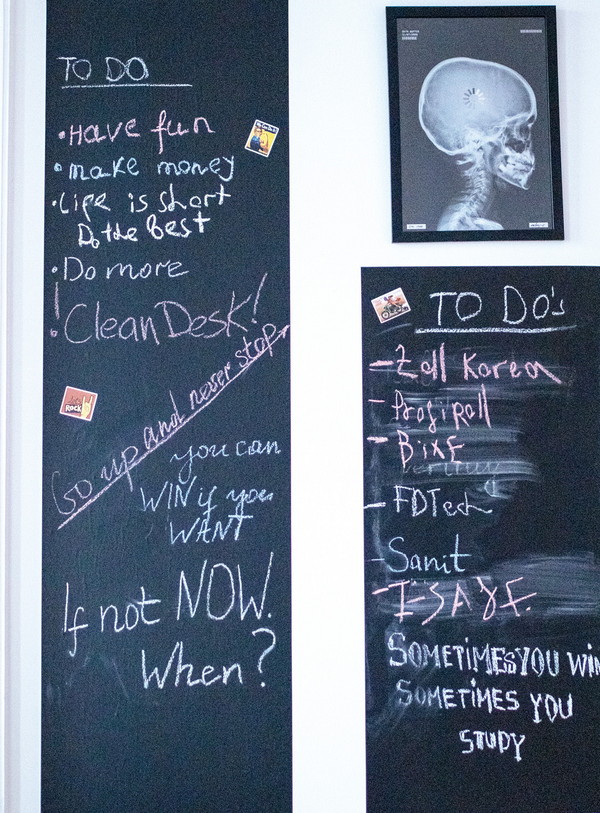 TO DO
• Have fun
• make money
• Life is short
Do the Best
• Do more
! Clean Desk!
Go up and never stop
you can
WIN if you
WANT
If not NOW.
When?
ROCK
TO DO's
- Zall Korea
- Profiroll
- BiXF
- FDTech
- Sanit
- I-SAYF.
SOMETIMES YOU WIN
SOMETIMES YOU
STUDY